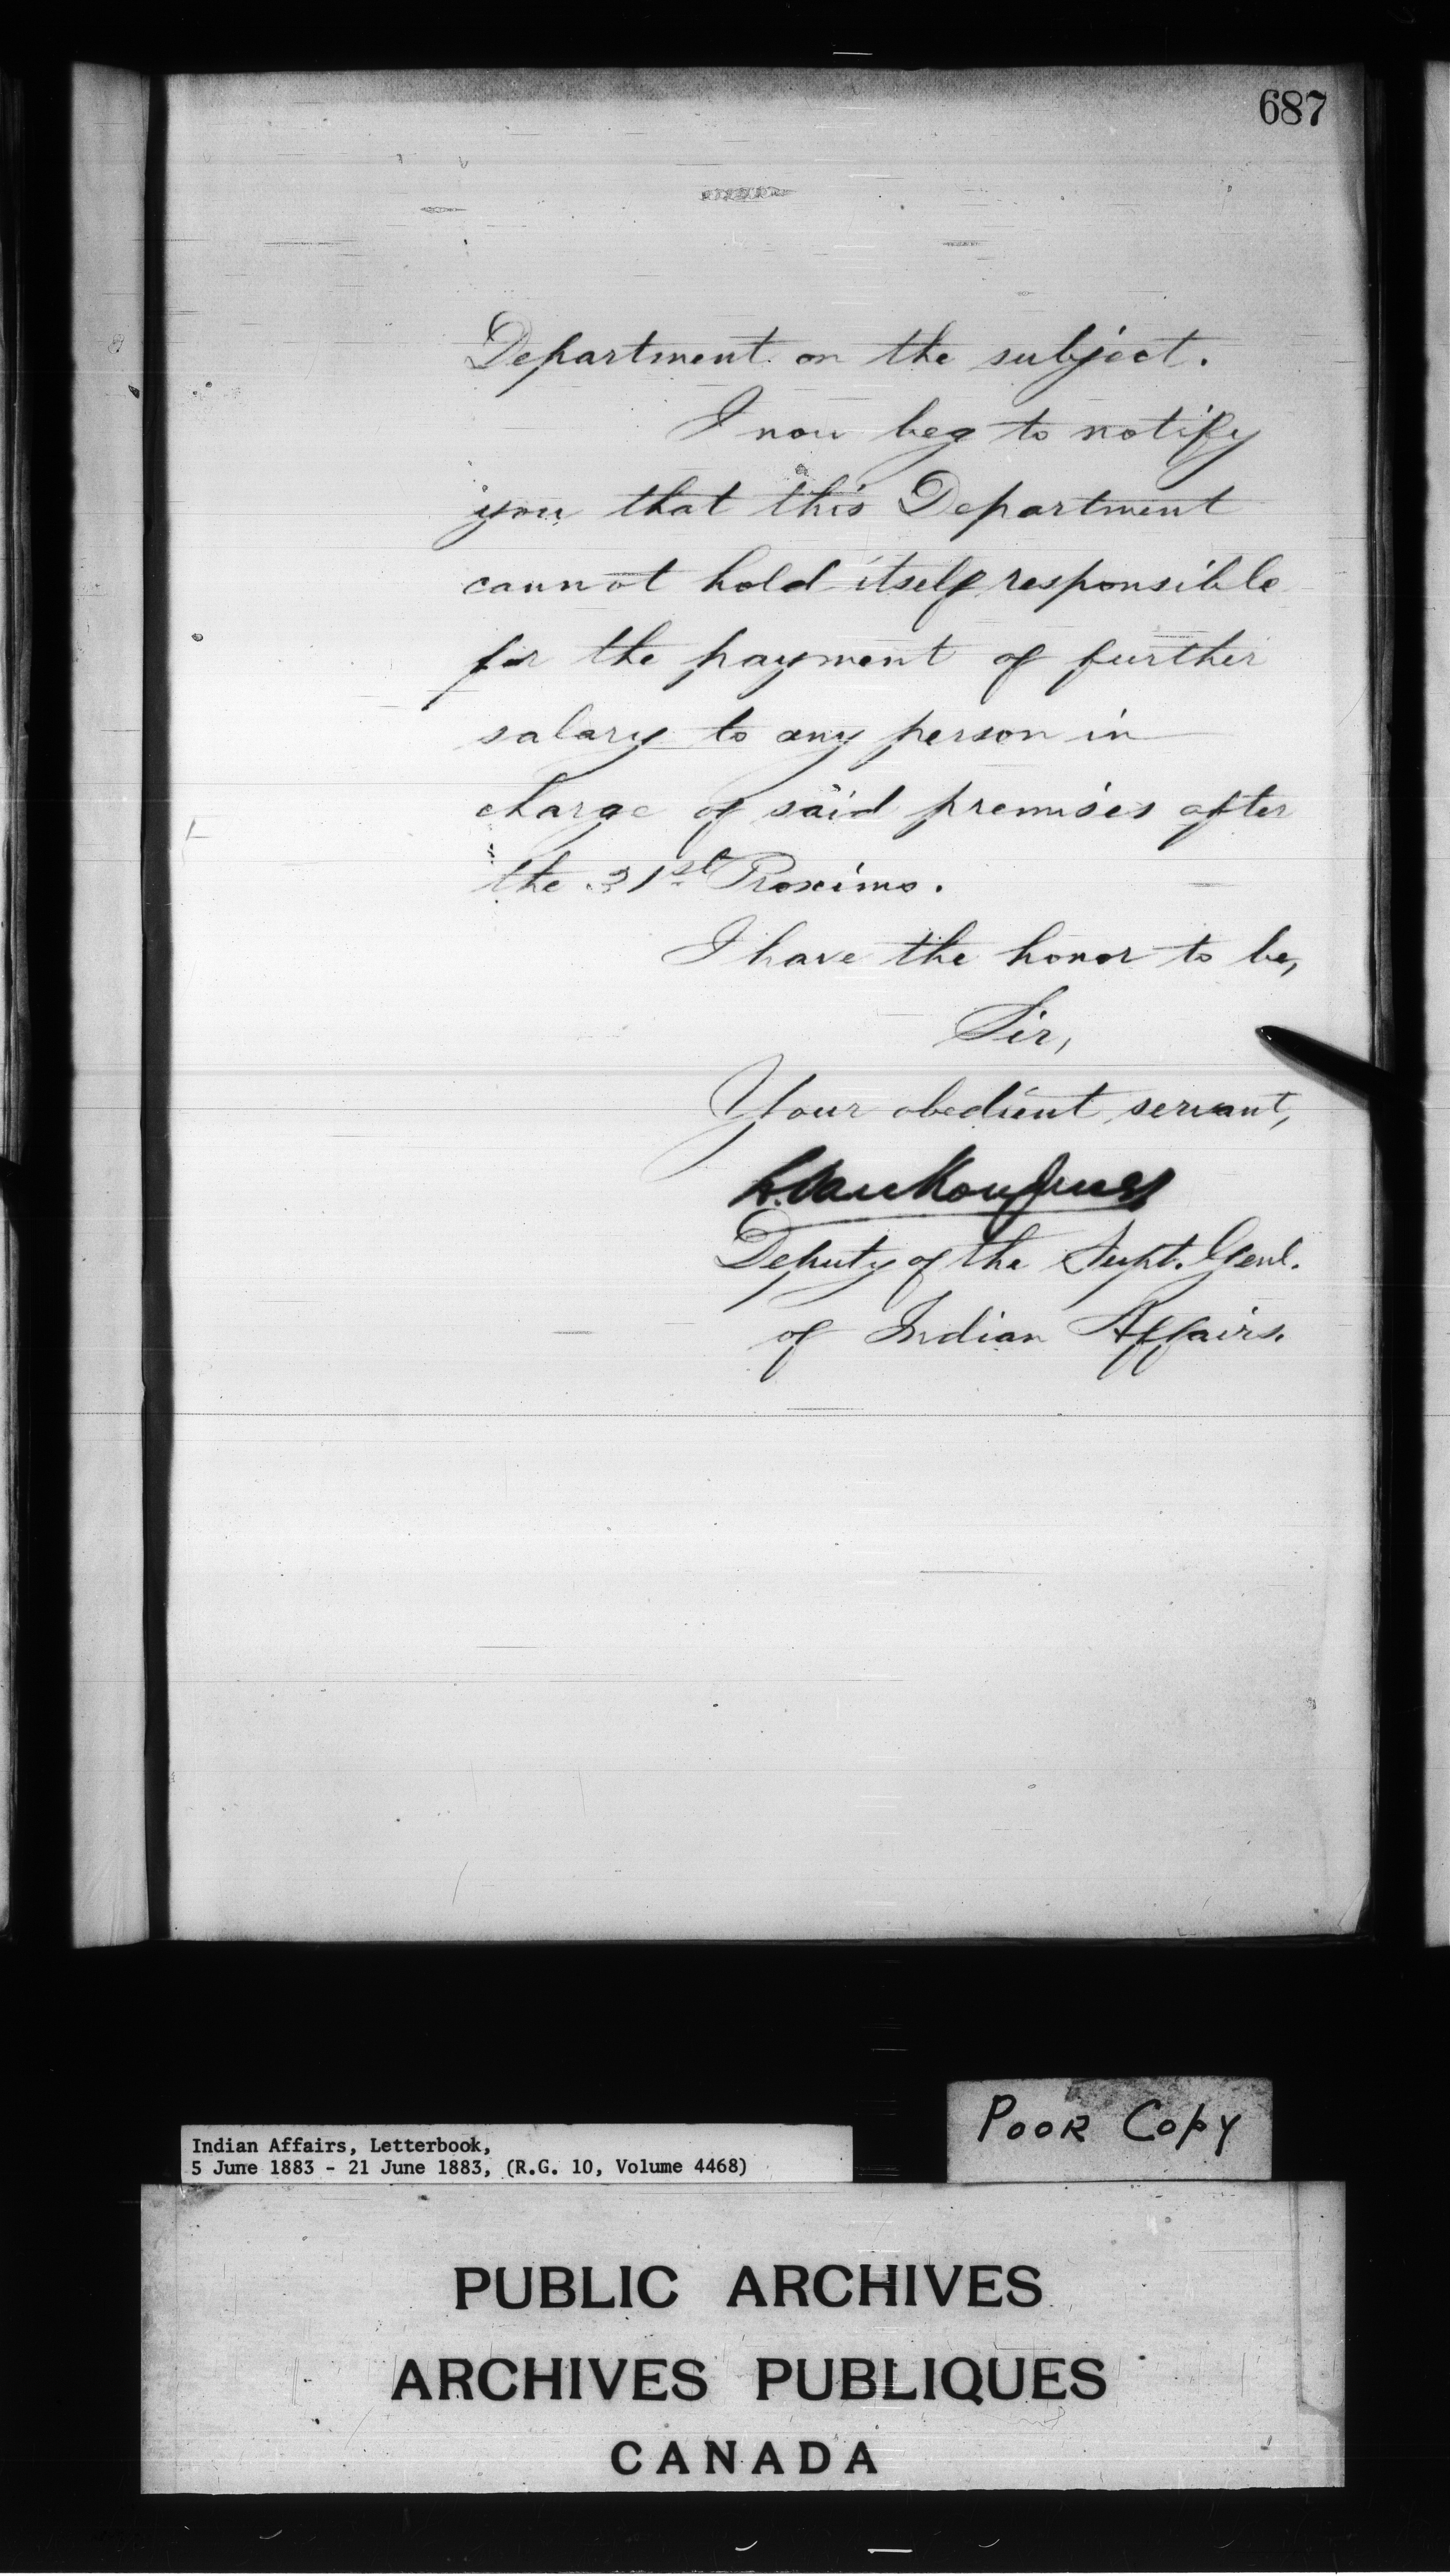 687
Department on the subject.
I now beg to notify
you that this Department
cannot hold itself responsible
for the payment of further
salary to any person in
charge of said premises after
the 31st Proximo.
I have the honor to be,
Sir,
Your obedient servant,
L. VanKoughnet
Deputy of the Supt. Genl.
of Indian Affairs.
Poor Copy
Indian Affairs, Letterbook,
5 June 1883 - 21 June 1883, (R.G. 10, Volume 4468)
PUBLIC ARCHIVES
ARCHIVES PUBLIQUES
CANADA